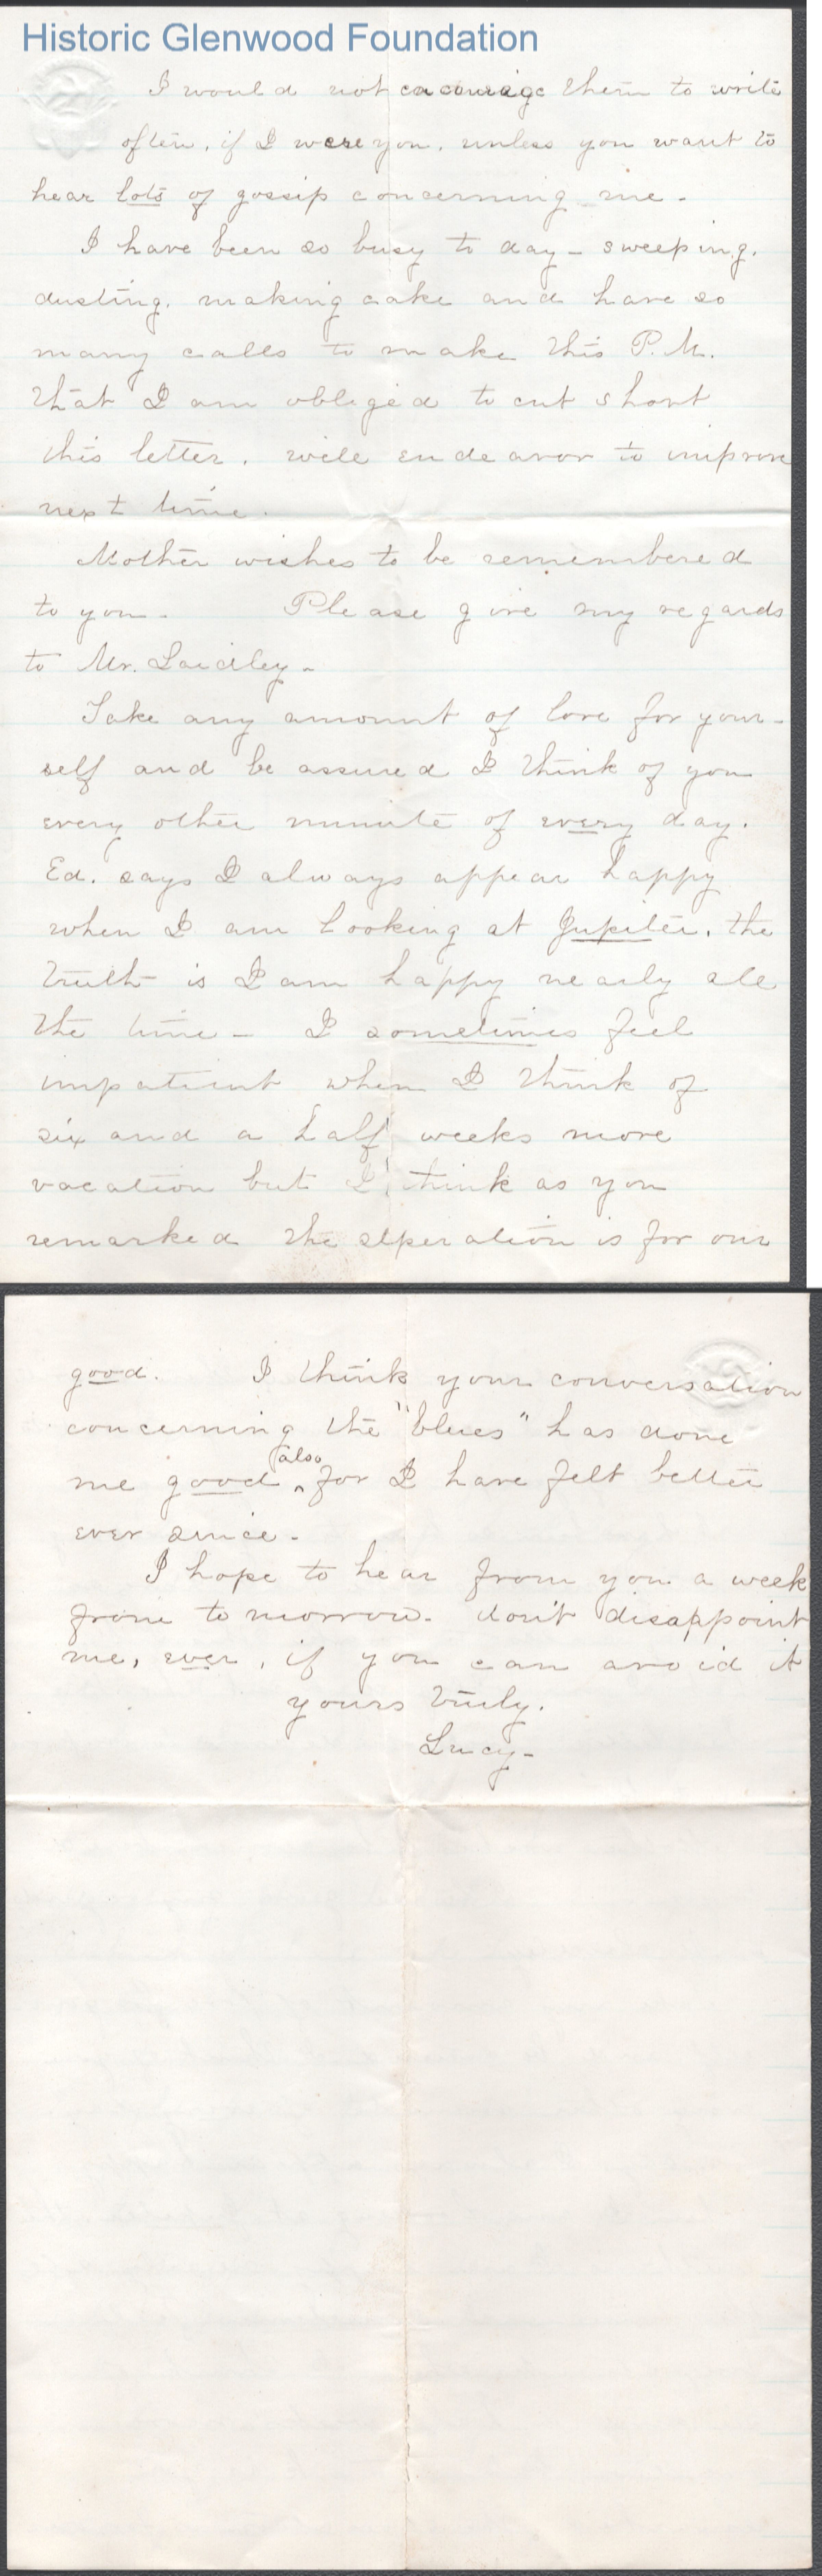 Historic Glenwood Foundation
I would not encourage them to write
often, if I were you, unless you want to
hear lots of gossip concerning me.
I have been so busy to day - sweeping,
dusting, making cake and have so
many calls to make this P.M.
that I am obliged to cut short
this letter. will endeavor to improve
next time.
Mother wishes to be remembered
to you. Please give my regards
to Mr. Laidley -
Take any amount of love for your-
self and be assured I think of you
every other minute of every day.
Ed. says I always appear happy
when I am looking at Jupiter. the
truth is I am happy nearly all
the time - I sometimes feel
impatient when I think of
six and a half weeks more
vacation but I think as you
remarked the seperation is for our
good. I think your conversation
concerning the "blues" has done
me good also for I have felt better
ever since -
I hope to hear from you a week
from to morrow. don't disappoint
me, ever, if you can avoid it
yours truly.
Lucy -